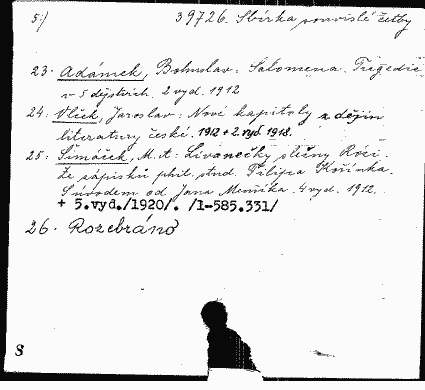 5:/ 39726. Sbírka souvislé četby
23. Adámek, Bohuslav: Salomena. Tragedie
v 5 dějstvích. 2 vyd. 1912
24. Vlček, Jaroslav: Nové kapitoly z dějin
literatury české. 1912 + 2. vyd 1918.
25: Šimáček, M. A: Lívanečky slečny Róči.
Ze zápisků phil. stud. Filipa Kořínka.
S úvodem od Jana Menšíka. 4 vyd. 1912.
+ 5.vyd./1920/. /1-585.331/
26. Rozebráno
8